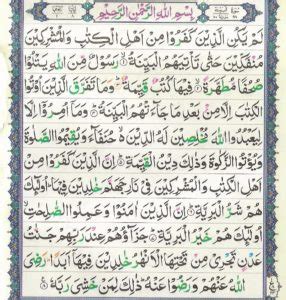 بِسْمِ اللّٰهِ الرَّحْمٰنِ الرَّحِيْمِ
لَمْ يَكُنِ الَّذِيْنَ كَفَرُوْا مِنْ اَهْلِ الْكِتٰبِ وَالْمُشْرِكِيْنَ
مُنْفَكِّيْنَ حَتّٰى تَاْتِيَهُمُ الْبَيِّنَةُ رَسُوْلٌ مِّنَ اللّٰهِ يَتْلُوْا
صُحُفًا مُّطَهَّرَةً فِيْهَا كُتُبٌ قَيِّمَةٌ وَمَا تَفَرَّقَ الَّذِيْنَ اُوْتُوا
الْكِتٰبَ اِلَّا مِنْۢ بَعْدِ مَا جَآءَتْهُمُ الْبَيِّنَةُ وَمَآ اُمِرُوْٓا اِلَّا
لِيَعْبُدُوا اللّٰهَ مُخْلِصِيْنَ لَهُ الدِّيْنَ حُنَفَآءَ وَيُقِيْمُوا الصَّلٰوةَ
وَيُؤْتُوا الزَّكٰوةَ وَذٰلِكَ دِيْنُ الْقَيِّمَةِ اِنَّ الَّذِيْنَ كَفَرُوْا مِنْ
اَهْلِ الْكِتٰبِ وَالْمُشْرِكِيْنَ فِيْ نَارِ جَهَنَّمَ خٰلِدِيْنَ فِيْهَا اُولٰٓئِكَ
هُمْ شَرُّ الْبَرِيَّةِ اِنَّ الَّذِيْنَ اٰمَنُوْا وَعَمِلُوا الصّٰلِحٰتِ
اُولٰٓئِكَ هُمْ خَيْرُ الْبَرِيَّةِ جَزَآؤُهُمْ عِنْدَ رَبِّهِمْ جَنّٰتُ
عَدْنٍ تَجْرِيْ مِنْ تَحْتِهَا الْاَنْهٰرُ خٰلِدِيْنَ فِيْهَآ اَبَدًا رَضِيَ
اللّٰهُ عَنْهُمْ وَرَضُوْا عَنْهُ ذٰلِكَ لِمَنْ خَشِيَ رَبَّهٗ